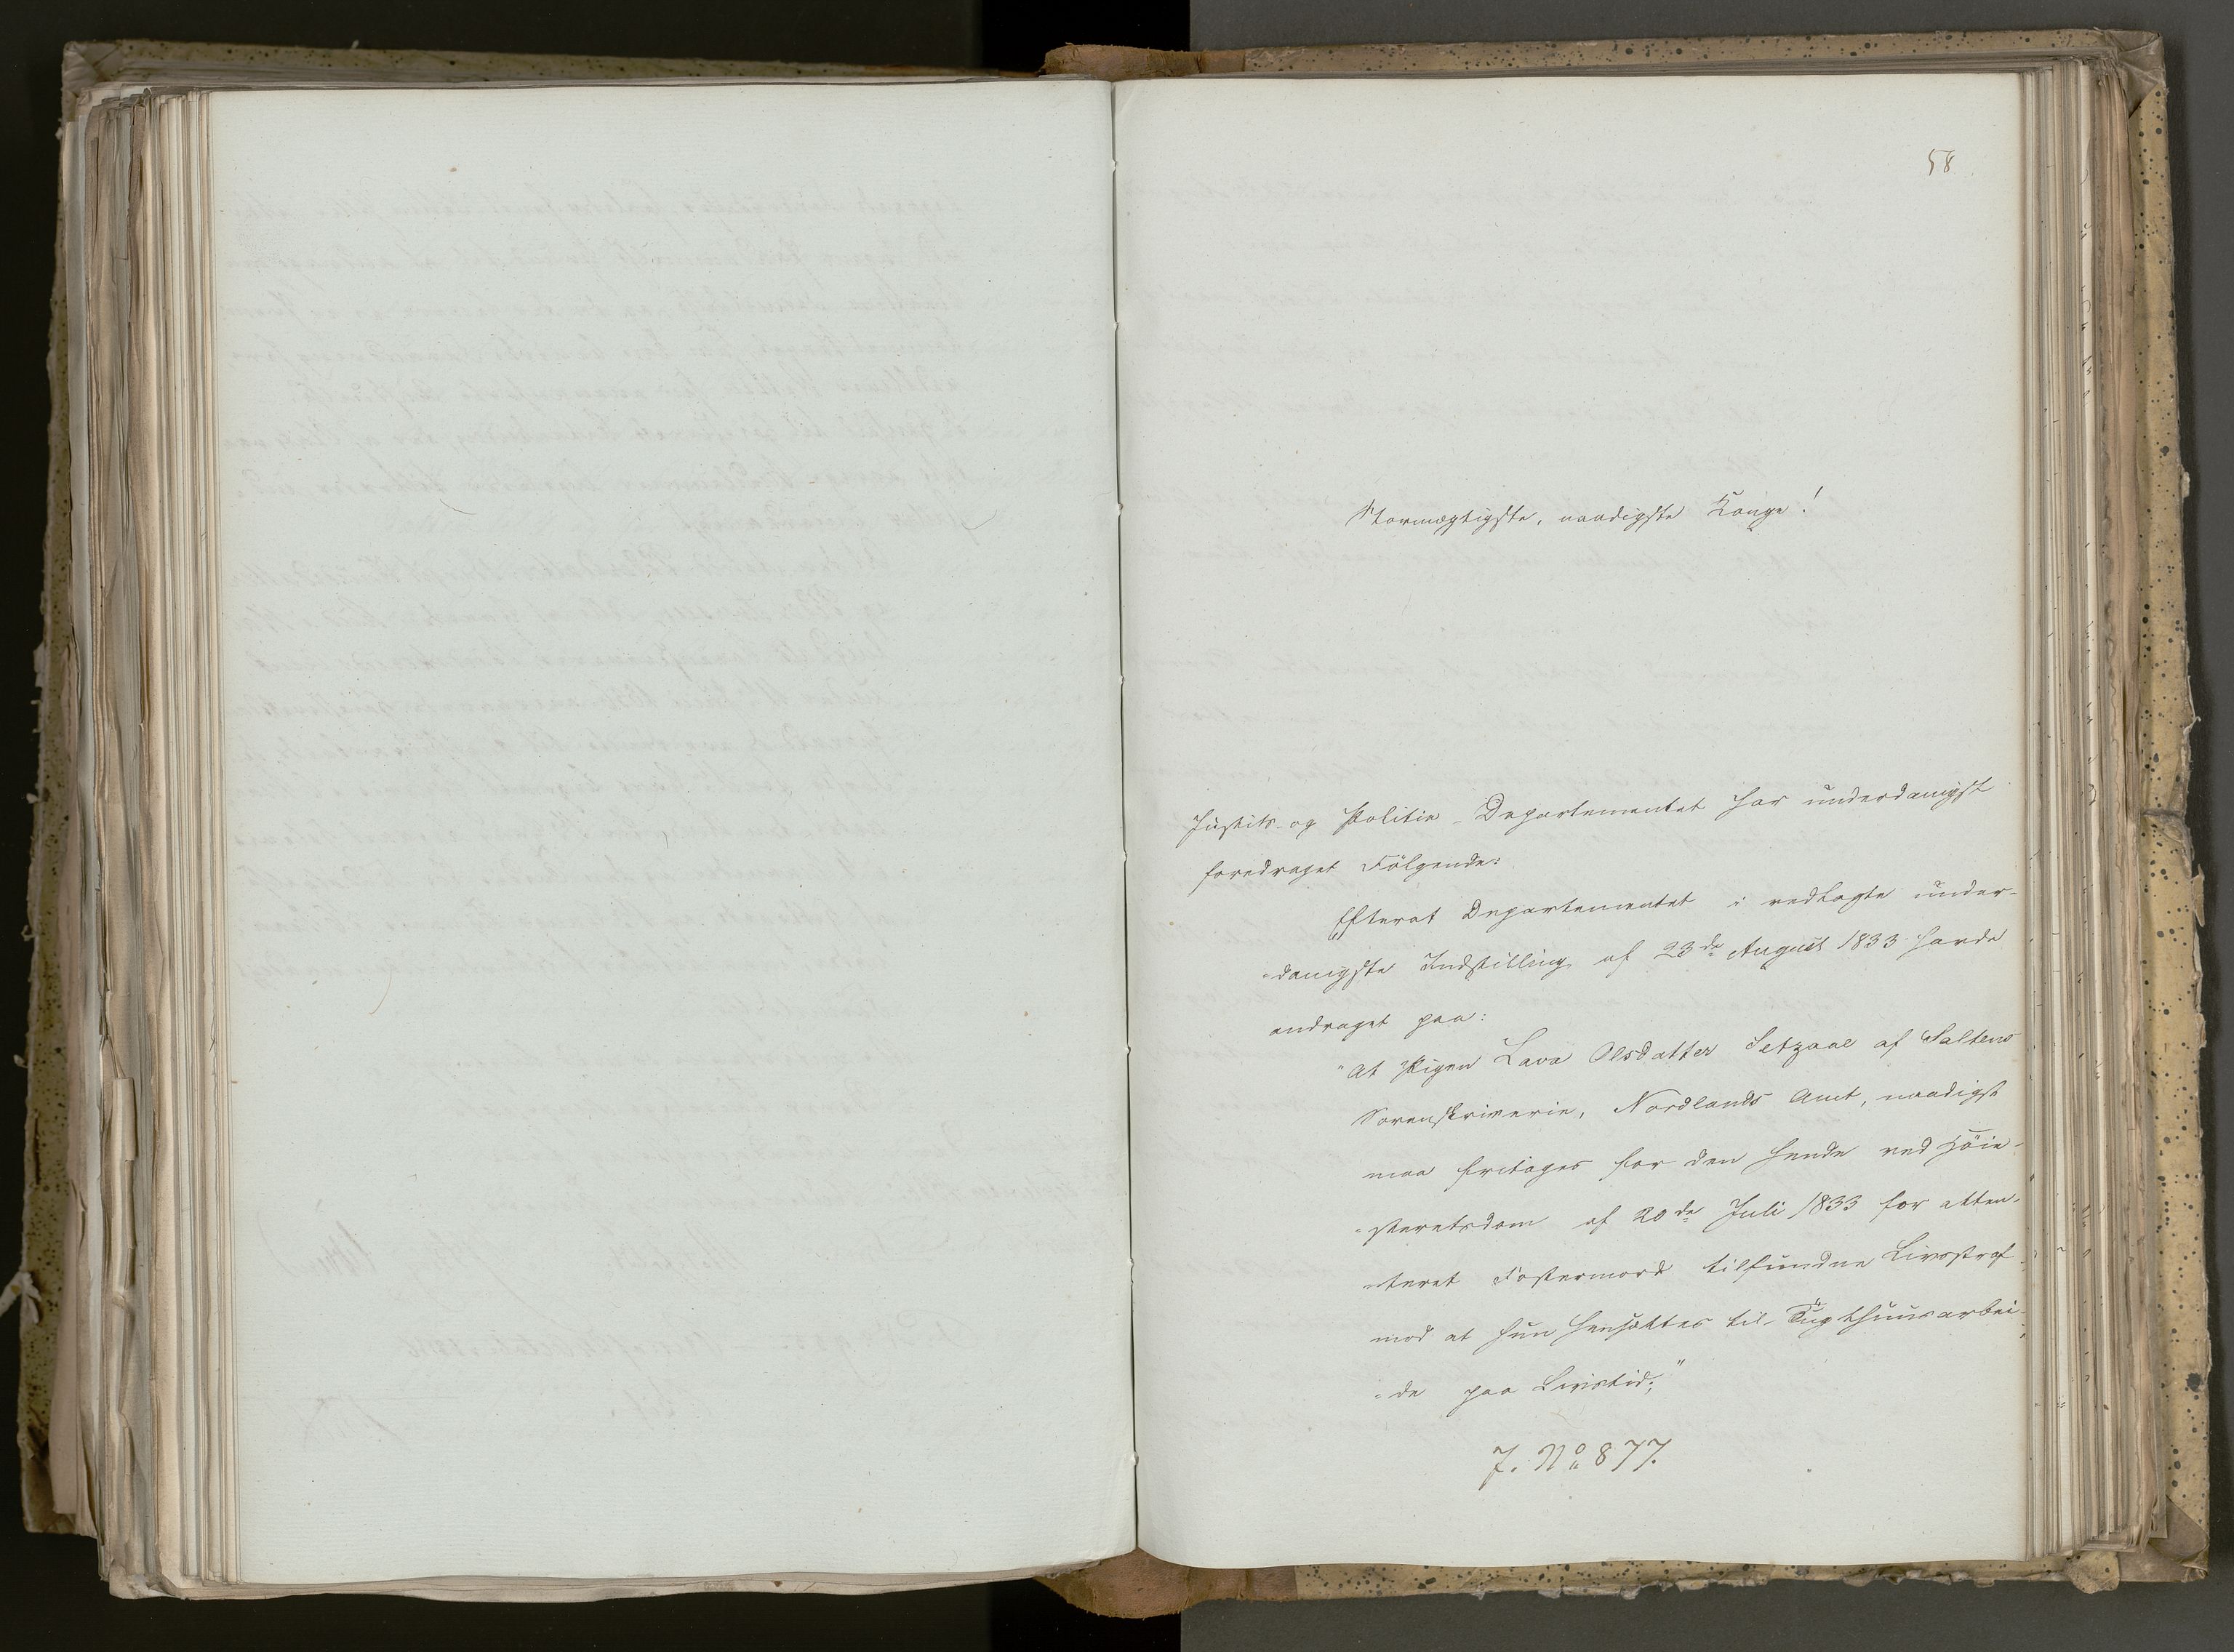 58
Stormægtigste, naadigste Konge!
Justits- og Politie-Departementet har underdanigst
foredraget Følgende:
Efterat Departementet i vedlagte under-
-danigste Indstilling af 23de August 1833 havde
andraget paa:
"At Pigen Lava Olsdatter Setzaae af Saltens
Sorenskriverie, Nordlands Amt, naadigst
maa fritages for den hende ved Höie-
-steretsdom af 20de Juli 1833 for atten-
-teret Fostermord tilfundne Livsstraf
mod at hun hensættes til Tugthuusarbei-
-de paa Livstid;"
J. No 877.